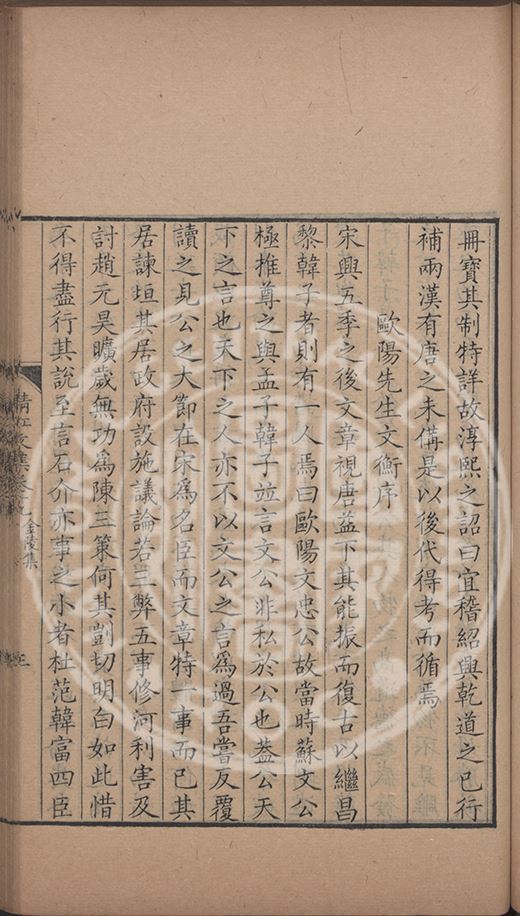 冊寶其制特詳故淳熙之詔曰宜稽紹興乾道之已行
補兩漢有唐之未備是以後代得考而循焉
歐陽先生文衡序
宋興五季之後文章視唐益下其能振而復古以繼昌
黎韓子者則有一人焉曰歐陽文忠公故當時蘇文公
極推尊之與孟子韓子並言文公非私於公也葢公天
下之言也天下之人亦不以文公之言為過吾嘗反覆
讀之見公之大節在宋為名臣而文章特一事而已其
居諫垣其居政府設施議論若三弊五事修河利害及
討趙元昊曠歲無功為陳三策何其剴切明白如此惜
不得盡行其說至言石介亦事之小者杜范韓富四臣
金陵集